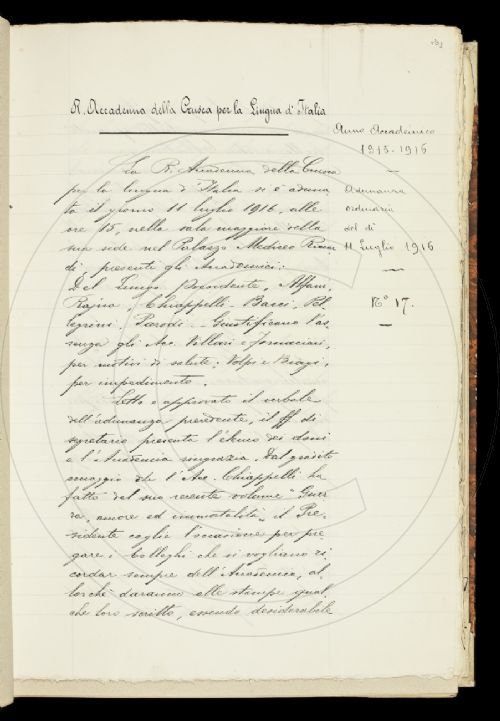 R. Accademia della Crusca per la Lingua d'Italia
Anno Accademico
1915-1916
Adunanza
ordinaria
del dì
11 Luglio 1916
N° 17.
La R. Accademia della Crusca
per la lingua d'Italia si è aduna
ta il giorno 11 luglio 1916, alle
ore 15, nella sala maggiore della
sua sede nel Palazzo Mediceo Riccar
di, presenti gli Accademici:
Del Lungo Presidente, Alfani,
Rajna, Chiappelli - Bacci, Pel
legrini, Parodi - Giustificano l'as
senza gli Acc. Villari e Fornaciari,
per motivi di salute; Volpi e Biagi,
per impedimento.
Letto e approvato il verbale
dell'adunanza precedente, il ff. di
segretario presenta l'elenco dei doni
e l'Accademia ringrazia. Dal gradito
omaggio che l'Acc. Chiappelli ha
fatto del suo recente volume "Guer
ra, amore ed immortalità", il Pre
sidente coglie l'occasione per pre
gare i Colleghi che si vogliano ri
cordar sempre dell'Accademia, al
lorchè daranno alle stampe qual
che loro scritto, essendo desiderabile